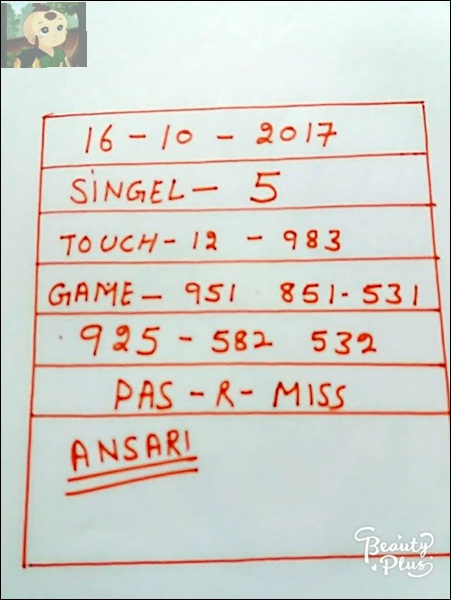 16 - 10 - 2017
SiNGEL - 5
TOUCH - 12 - 983
GAME - 951 851 - 531
925 - 582 532
PAS - R - MISS
ANSARI
Beauty
Plus